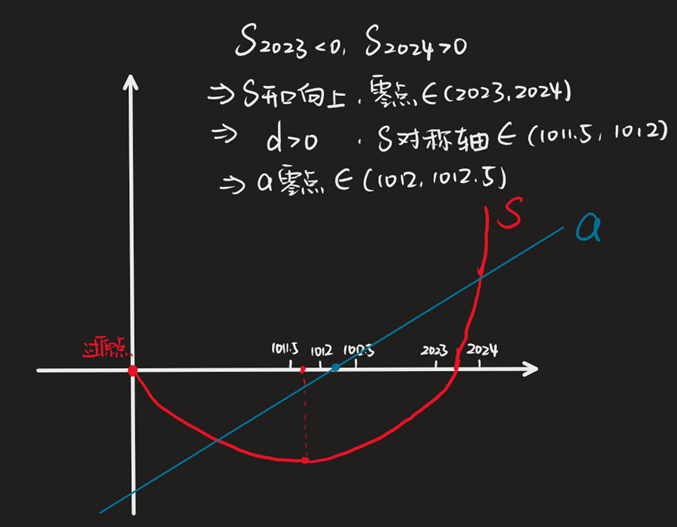 S2023<0, S2024>0
⇒S开口向上.零点∈(2023,2024)
⇒ d>0 . S对称轴∈(1011.5, 1012)
⇒a零点∈(1012, 1012.5)
S
a
过原点
1011.5 1012 1012.5 2023 2024